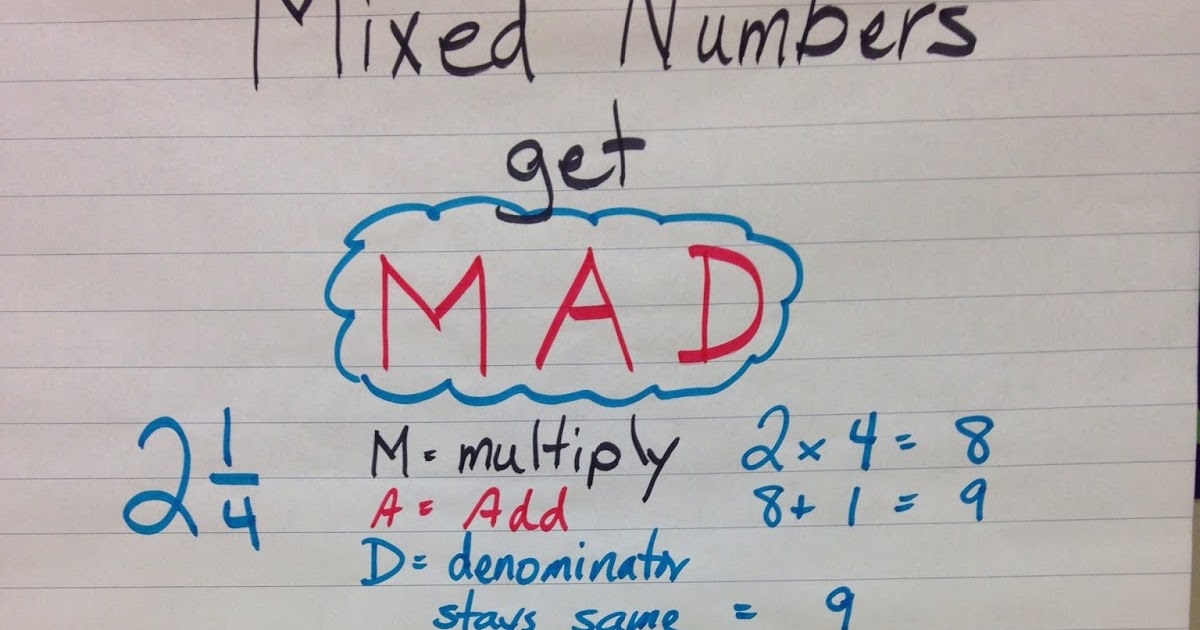 Mixed Numbers
get
MAD
2 1/4
M = multiply 2 x 4 = 8
A = Add 8 + 1 = 9
D = denominator
stays same = 9